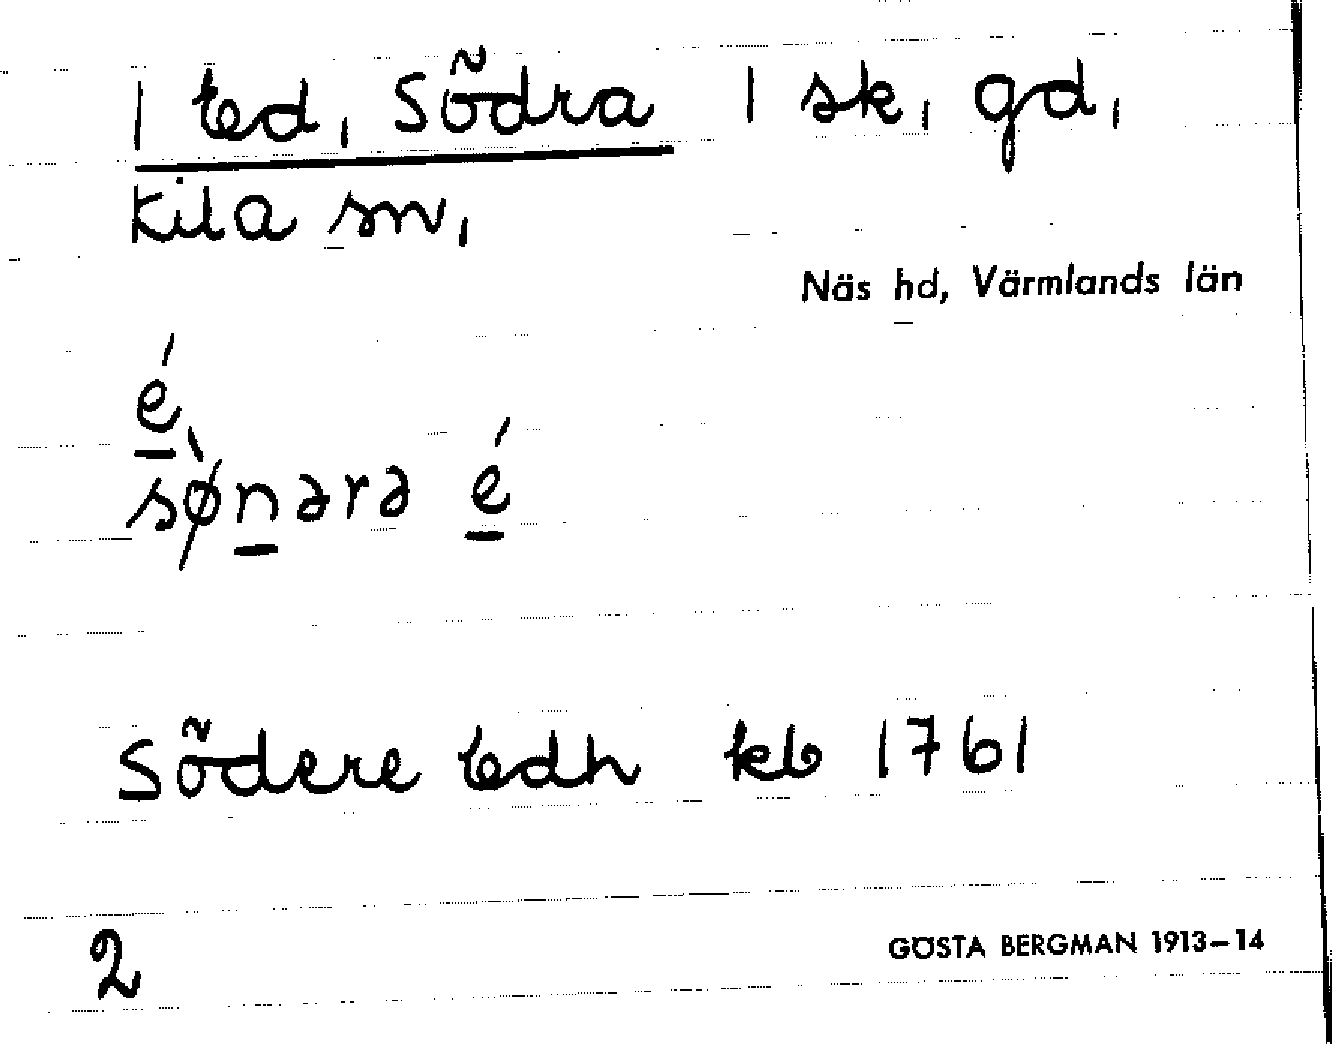 | Ed, Södra | sk, gd,
Kila sn,
Näs hd, Värmlands län
é
sø̀nərə é
Södere Edh kb 1761
2
GÖSTA BERGMAN 1913–14